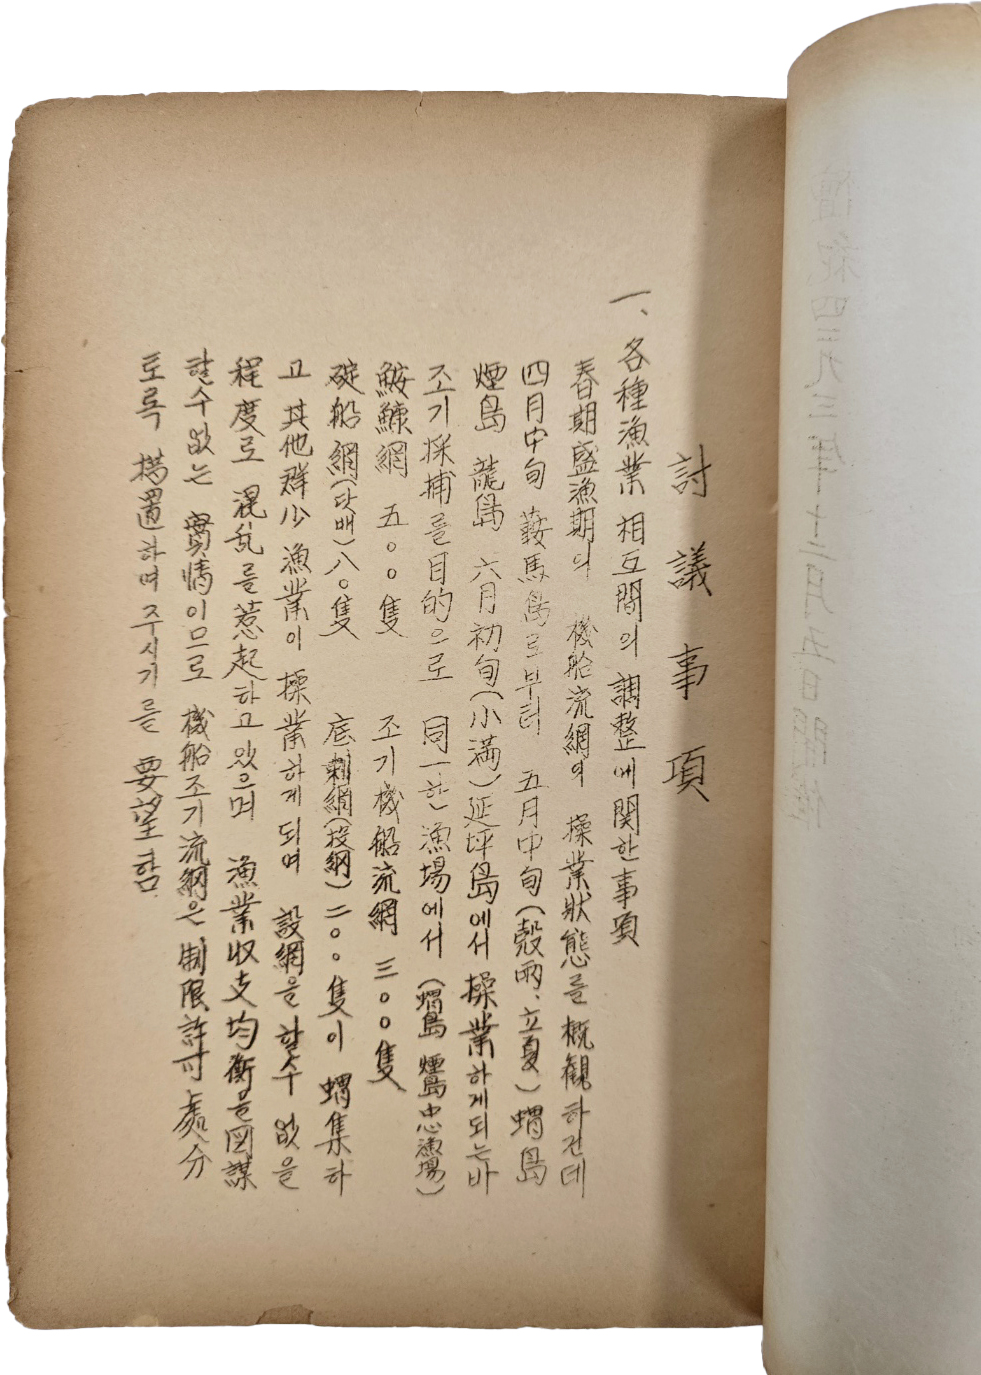 討議事項
一、各種漁業 相互間의 調整에 関한 事項
春期盛漁期의 機船流網의 操業狀態를 概観하건데
四月中旬 鞍馬島로부터 五月中旬(穀雨、立夏) 蝟島
煙島 龍島 六月初旬(小満) 延坪島에서 操業하게되는바
조기採捕를 目的으로 同一한 漁場에서 (蝟島 煙島 中心漁場)
鮟鱇網 五〇〇隻 조기機船流網 三〇〇隻
碇船網(닻배) 八〇隻 底刺網(投網) 二〇〇隻이 蝟集하
고 其他群少 漁業이 操業하게 되며 設網을 할수 없을
程度로 混乱를 惹起하고 있으며 漁業収支均衡을 図謀
할수없는 實情이므로 機船조기流網은 制限許可處分
토록 措置하며주시기를 要望함.
檀紀四二九三年十二月五日開催